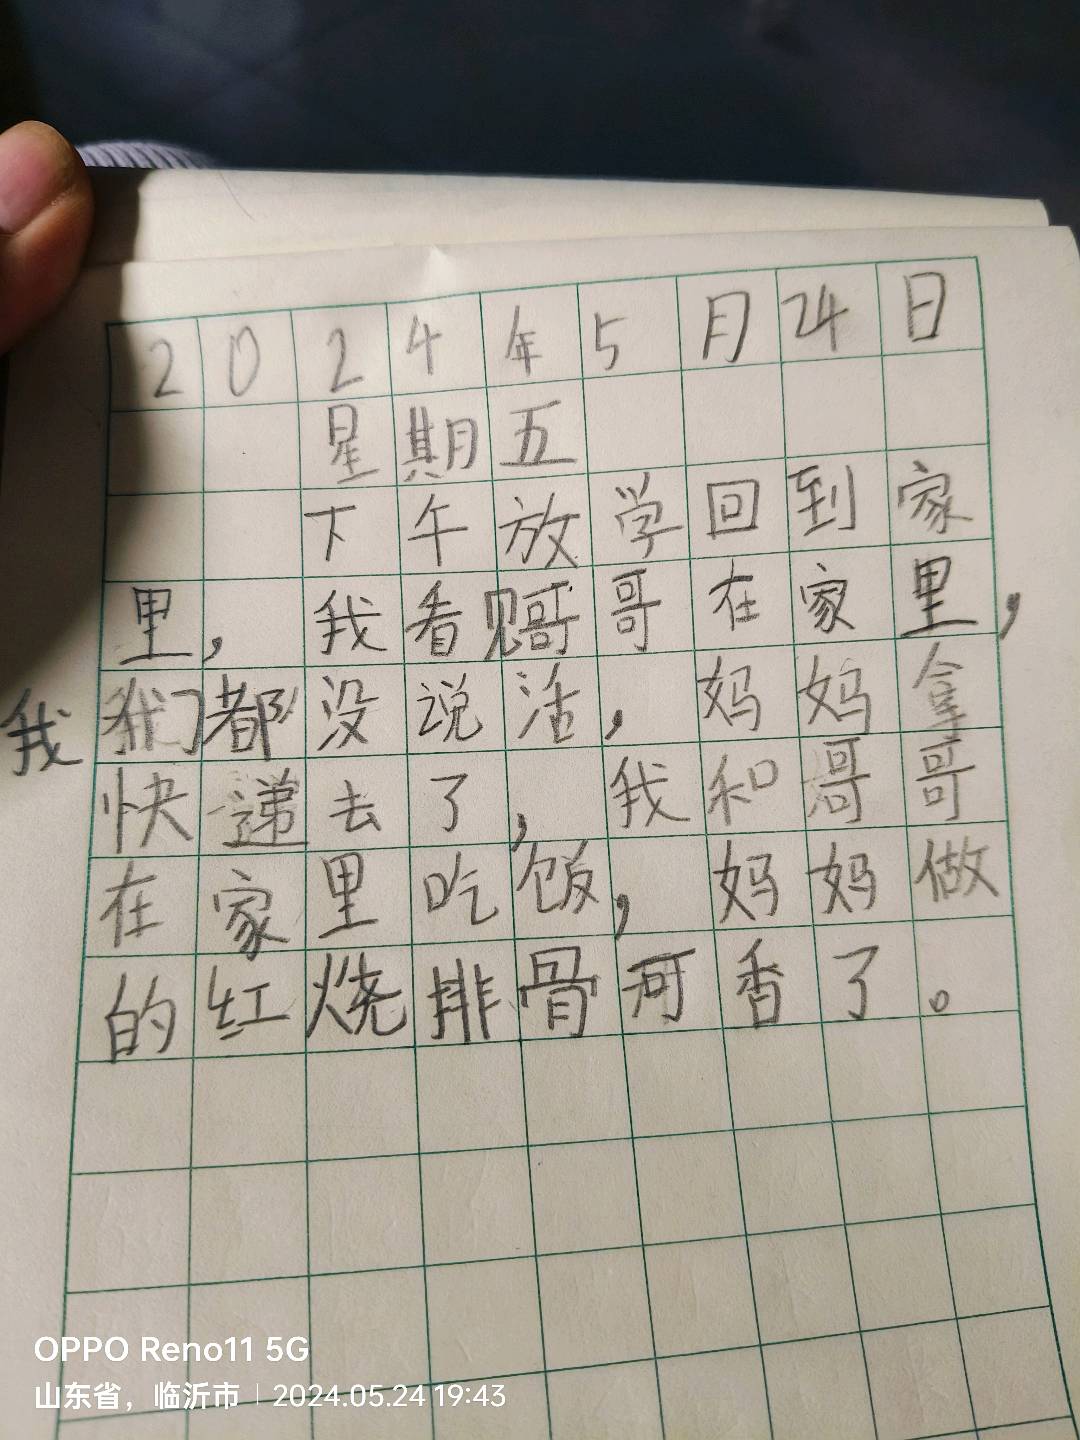 2024年5月24日
星期五
下午放学回到家
里，我看见哥哥在家里，
我我们都没说活，妈妈拿
快递去了，我和哥哥
在家里吃饭，妈妈做
的红烧排骨可香了。
OPPO Reno11 5G
山东省，临沂市 | 2024.05.24 19:43